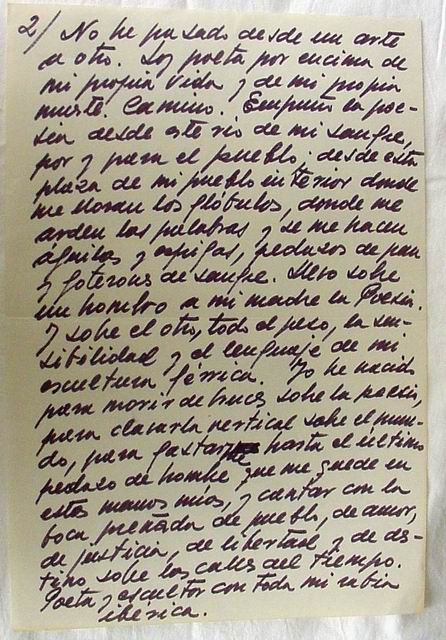 2/ No he pasado desde un arte
a otro. Soy poeta por encima de
mi propia vida y de mi propia
muerte. Camino. Empuño la poe-
sía desde este río de mi sangre,
por y para el pueblo; desde esta
plaza de mi pueblo interior donde
me lloran los glóbulos, donde me
arden las palabras y se me hacen
águilas y espigas, pedazos de pan
y goterones de sangre. Llevo sobre
un hombro a mi madre la Poesía.
Y sobre el otro, todo el peso, la sen-
sibilidad y el lenguaje de mi
escultura férrica. Yo he nacido
para morir de bruces sobre la poesía,
para clavarla vertical sobre el mun-
do, para gastar hasta el último
pedazo de hombre que me quede en
estas manos mías, y cantar con la
boca preñada de pueblo, de amor,
de justicia, de libertad y de des-
tino sobre las calles del tiempo.
Poeta y escultor con toda mi rabia
ibérica.